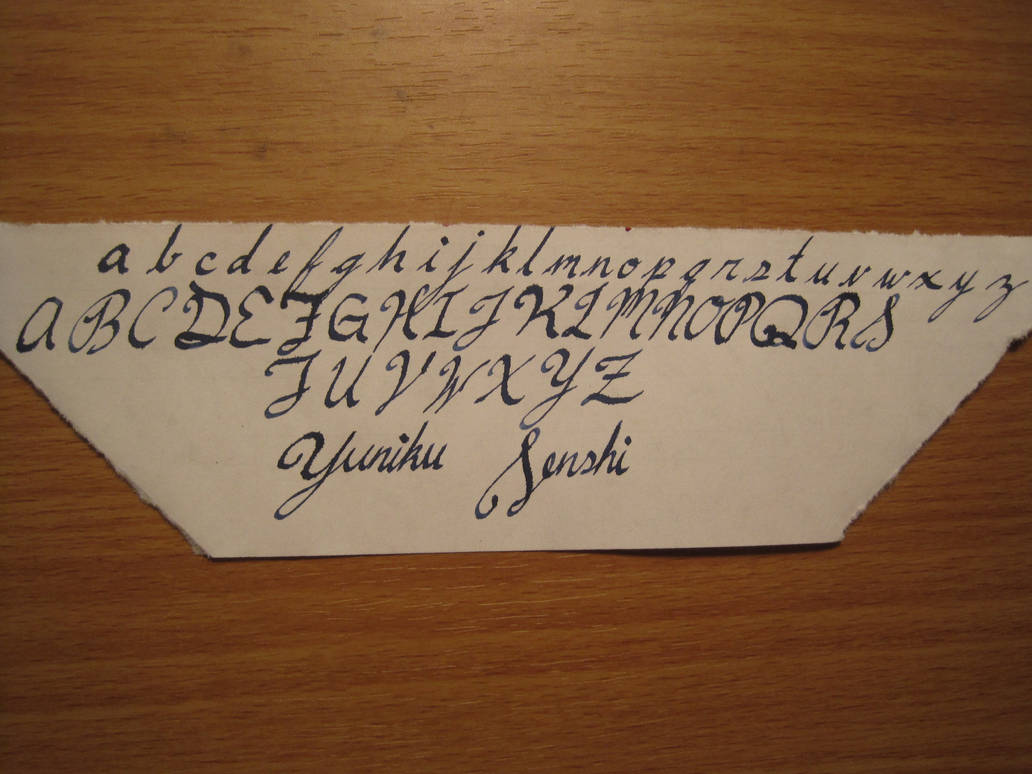 a b c d e f g h i j k l m n o p q r s t u v w x y z
A B C D E F G H I J K L M N O P Q R S
T U V W X Y Z
Yuniku Senshi